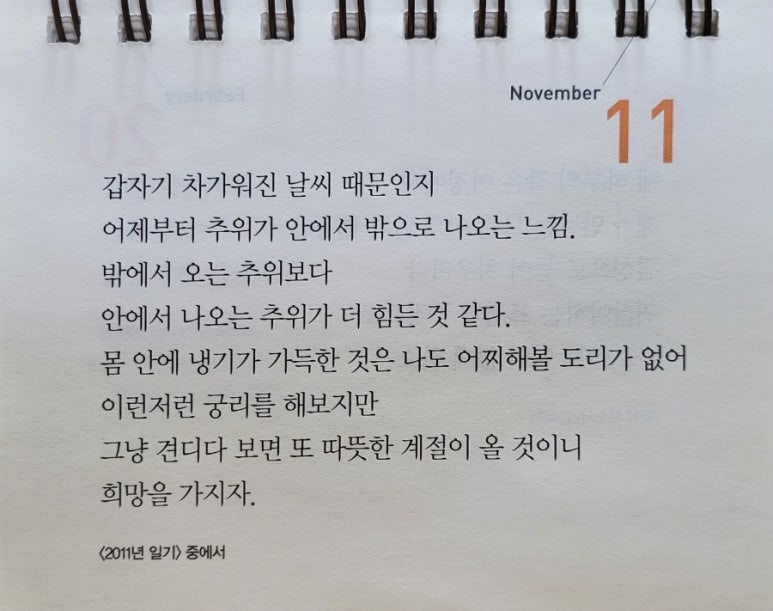 November
11
갑자기 차가워진 날씨 때문인지
어제부터 추위가 안에서 밖으로 나오는 느낌.
밖에서 오는 추위보다
안에서 나오는 추위가 더 힘든 것 같다.
몸 안에 냉기가 가득한 것은 나도 어찌해볼 도리가 없어
이런저런 궁리를 해보지만
그냥 견디다 보면 또 따뜻한 계절이 올 것이니
희망을 가지자.
〈2011년 일기〉 중에서